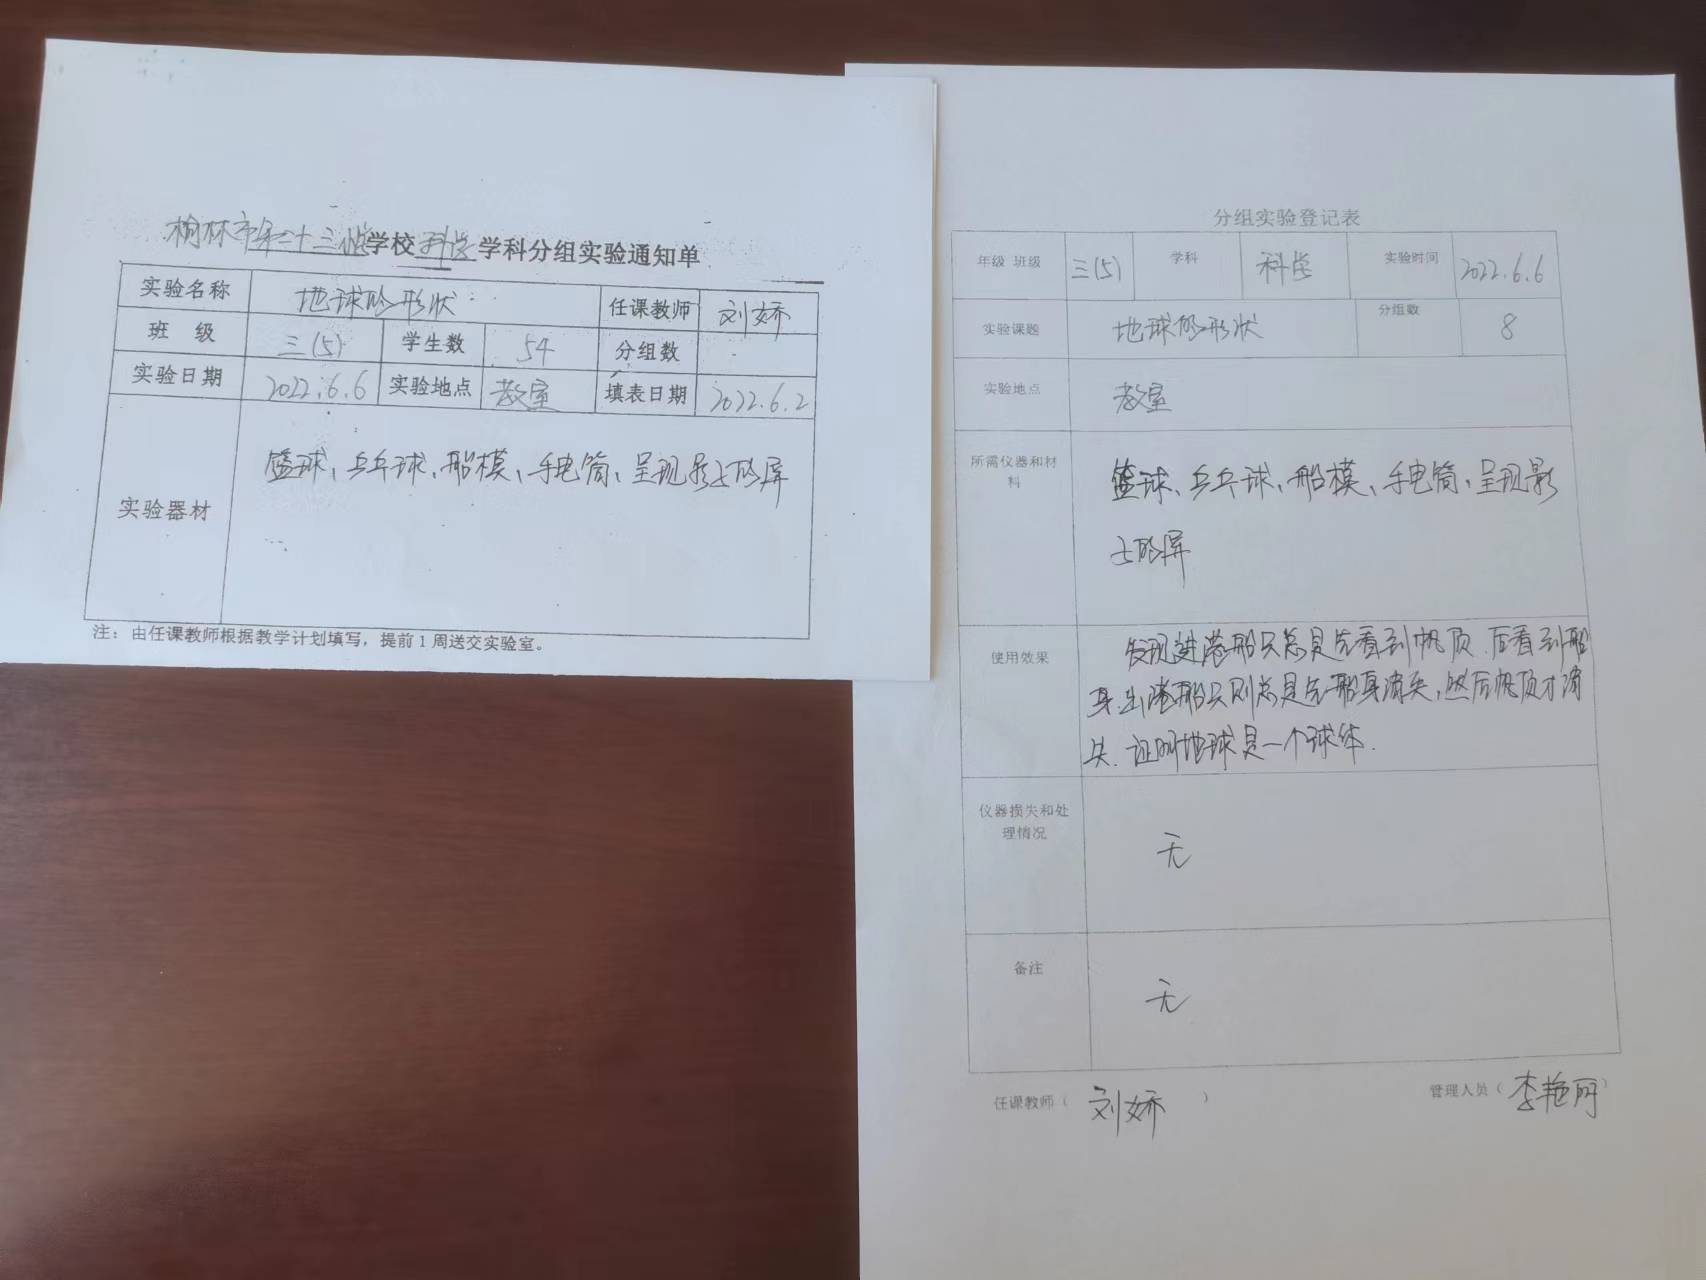 榆林市第二十三小学校科学学科分组实验通知单
实验名称 地球的形状 任课教师 刘娇
班 级 三(5) 学生数 54 分组数
实验日期 2022.6.6 实验地点 教室 填表日期 2022.6.2
实验器材 篮球、乒乓球、船模、手电筒、呈现影子的屏
注：由任课教师根据教学计划填写，提前1周送交实验室。
分组实验登记表
年级 班级 三(5) 学科 科学 实验时间 2022.6.6
实验课题 地球的形状 分组数 8
实验地点 教室
所需仪器和材料 篮球、乒乓球、船模、手电筒、呈现影
子的屏
使用效果 发现进港船只总是先看到帆顶.后看到船
身.出港船只则总是先船身消失,然后帆顶才消
失.证明地球是一个球体.
仪器损失和处理情况 无
备注 无
任课教师（刘娇） 管理人员（李艳）